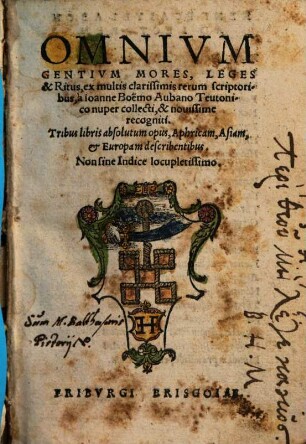 OMNIVM
GENTIVM MORES, LEGES
& Ritus, ex multis clarissimis rerum scriptori-
bus, à Ioanne Boëmo Aubano Teutoni-
co nuper collecti, & nouissime
recogniti.
Tribus libris absolutum opus, Aphricam, Asiam,
& Europam describentibus.
Non sine Indice locupletissimo.
Sum M. Balthasaris
H
FRIBVRGI BRISGOIAE.
B. H. M